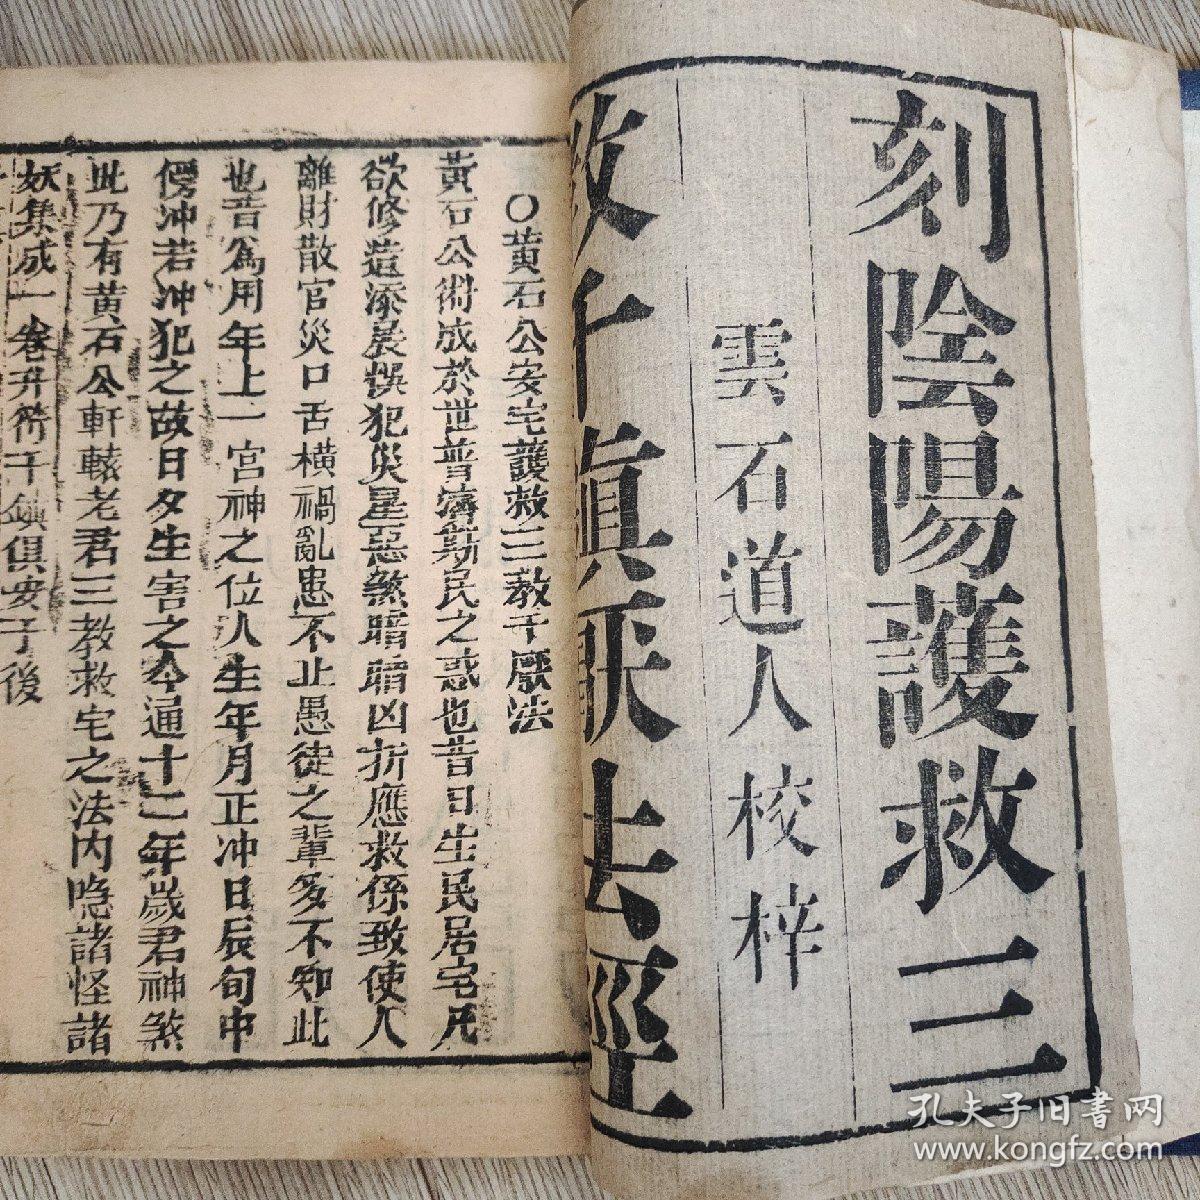 刻陰陽護救三
雲石道人校梓
教千鎮厭法經
○黃石公安宅護救三教千厭法
黃石公術成於世普濟斯民之惑也昔日生民居宅凡
欲修造添展誤犯災星惡煞暗暗凶折應救係致使人
離財散官災口舌橫禍亂患不止愚徒之輩多不知此
也昔為用年上一宮神之位人生年月正冲日辰旬中
傍冲若冲犯之故日夕生害之今通十二年歲君神煞
此乃有黃石公軒轅老君三教救宅之法內隐諸怪諸
妖集成一卷升符千鎮俱安于後
孔夫子旧书网
www.kongfz.com